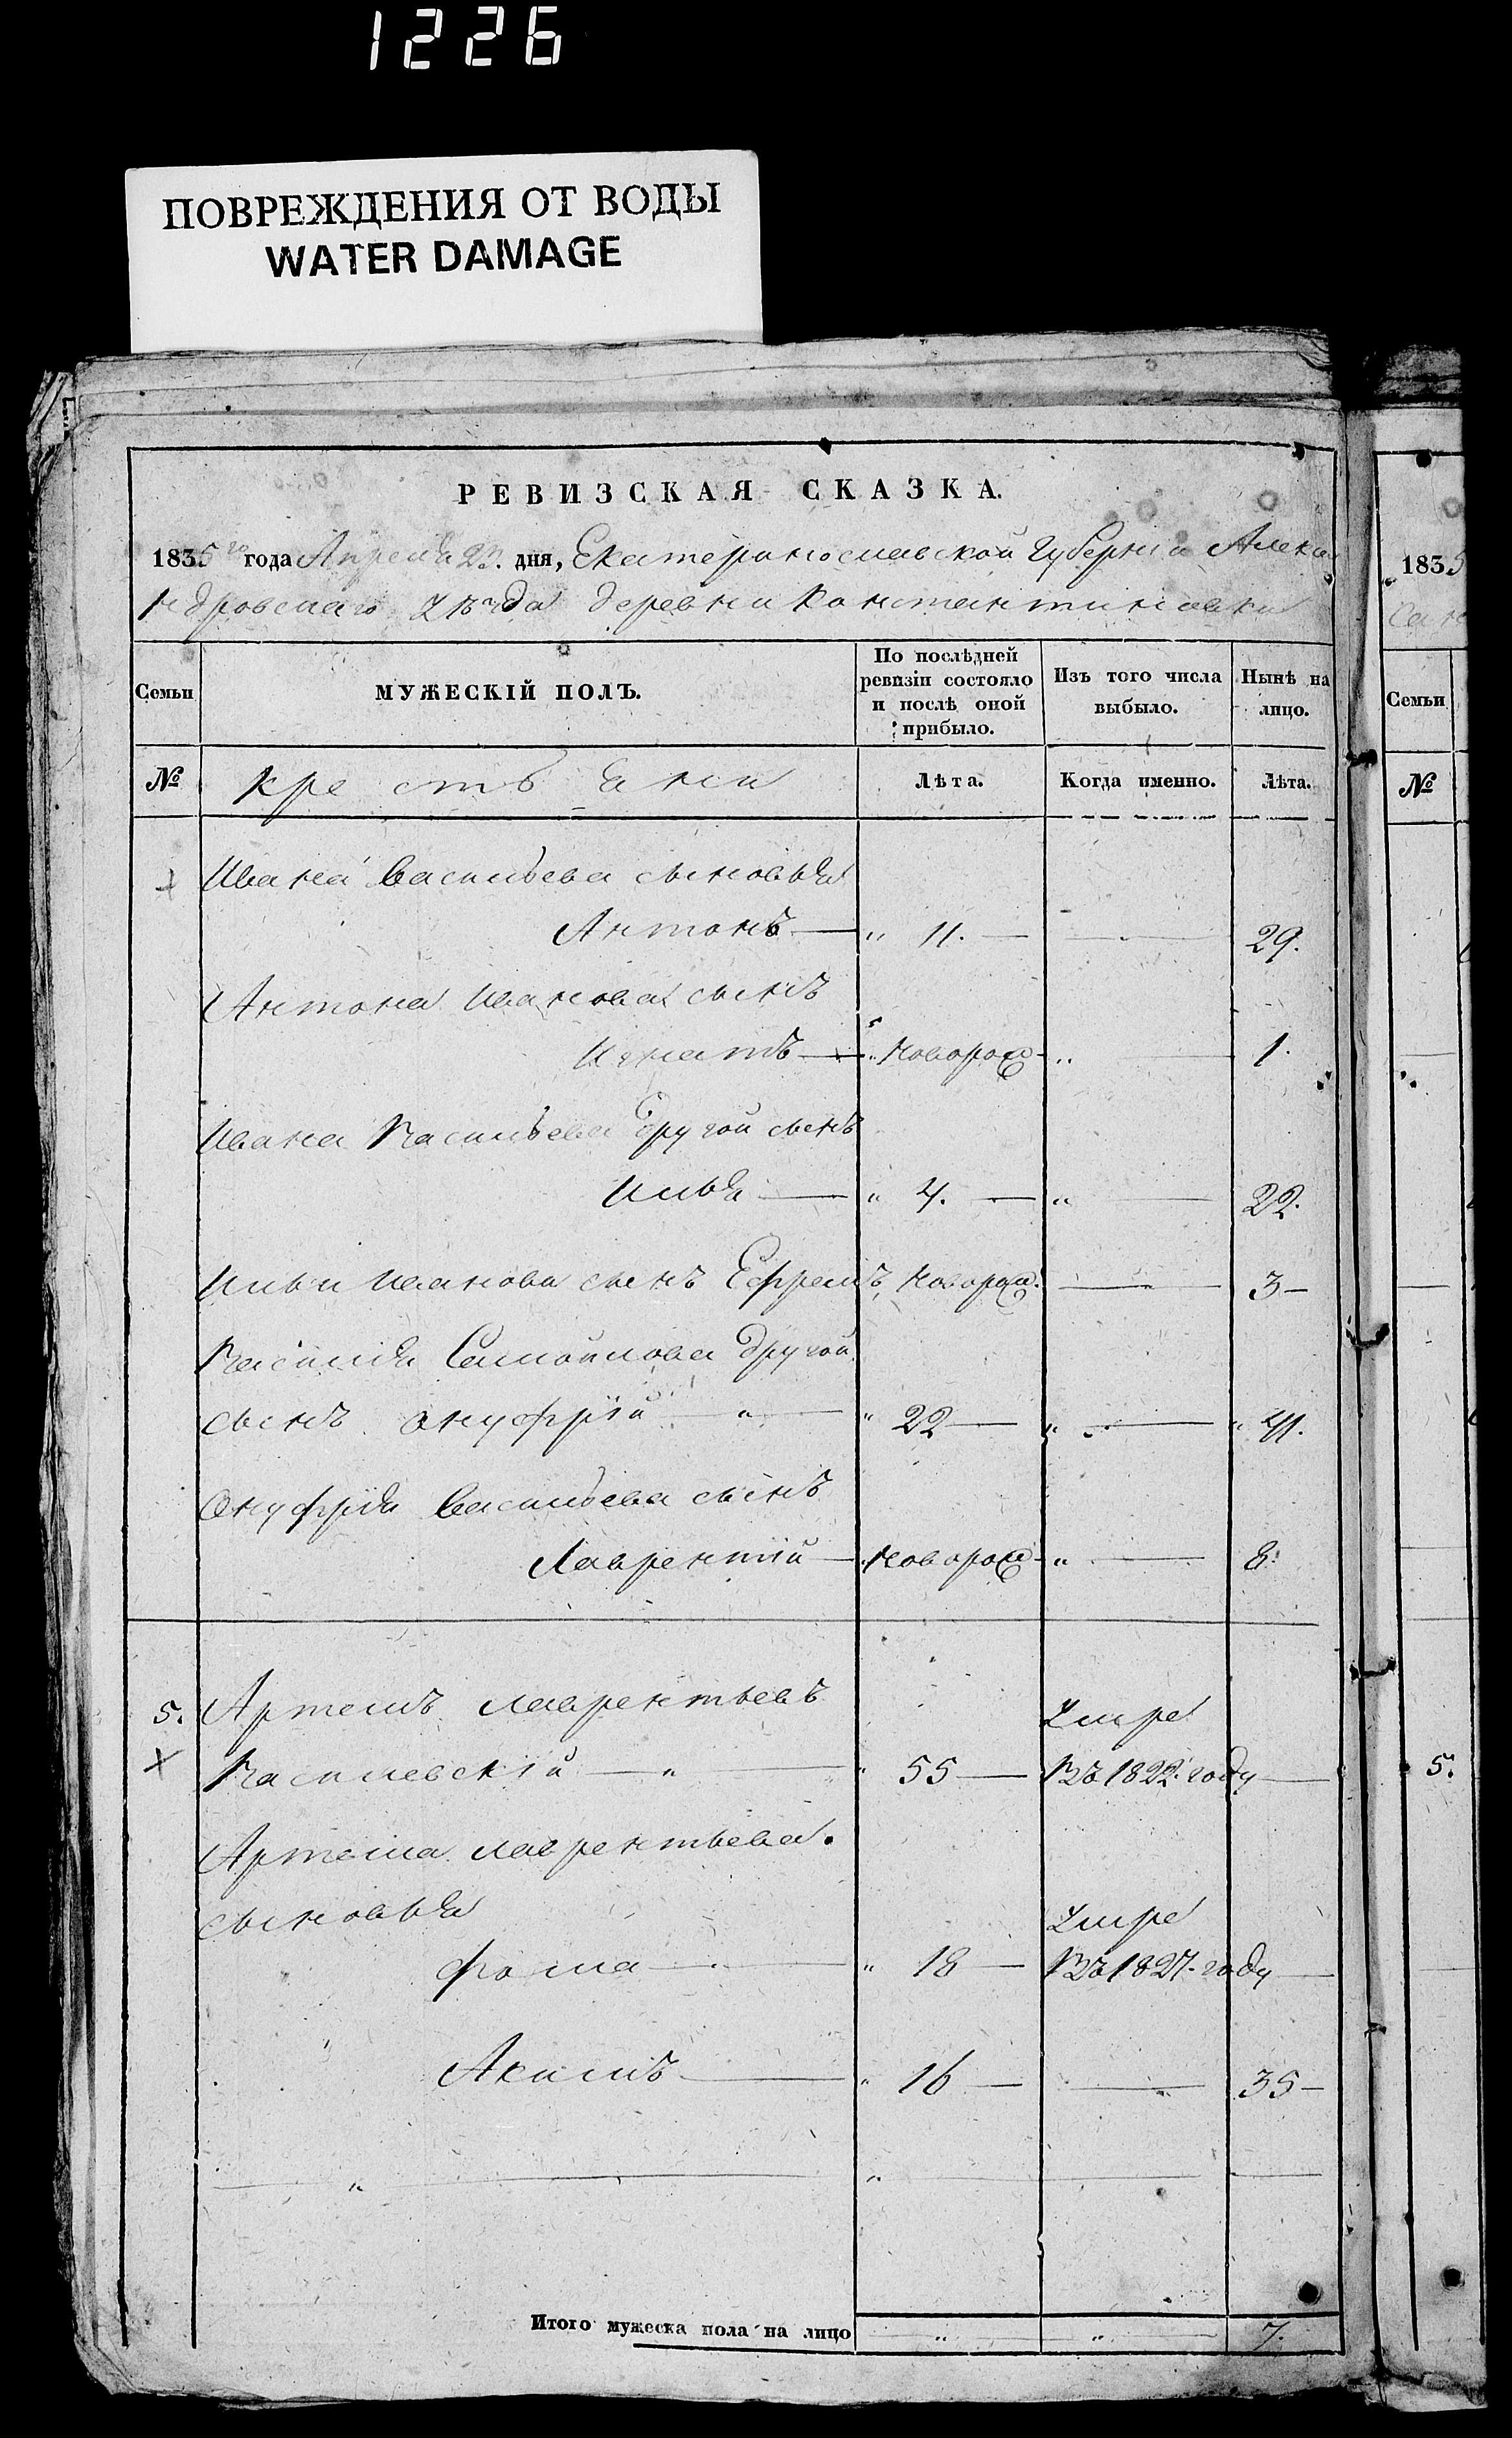 1226
ПОВРЕЖДЕНИЯ ОТ ВОДЫ
WATER DAMAGE
РЕВИЗСКАЯ СКАЗКА.
1835го года Апреля 23. дня, Екатеринославской Губернiи Алекса
ндровскаго уѣзда деревни Константиновки
Семьи МУЖЕСКIЙ ПОЛЪ. По послѣдней ревизiи состояло и послѣ оной прибыло. Изъ того числа выбыло. Нынѣ на лицо.
№ крестьяни Лѣта. Когда именно. Лѣта.
Ивана Васильева сыновья
Антонъ — „ 11. — — 29.
Антона Иванова сынъ
Игнатъ — „ новорож „ — 1.
Ивана Васильева другой сынъ
Илья — „ 4. — „ — 22.
Ильи Иванова сынъ Ефремъ новорож. — 3 —
Василья Самойлова другой
сынъ Онуфрiй — „ — „ 22 — „ — „ 41.
Онуфрiя Васильева сынъ
Лаврентiй — новорож „ — 8.
5. Артемъ Лаврентьевъ Умре
Х Василевскiй — „ — „ 55 — Въ 1822. году —
Артема Лаврентьева.
сыновья Умре
Фома — „ 18 — Въ 1827. году —
Акимъ — „ 16 — — 35 —
Итого мужеска пола на лицо „ „ 7.
1835
Семьи
№
5.